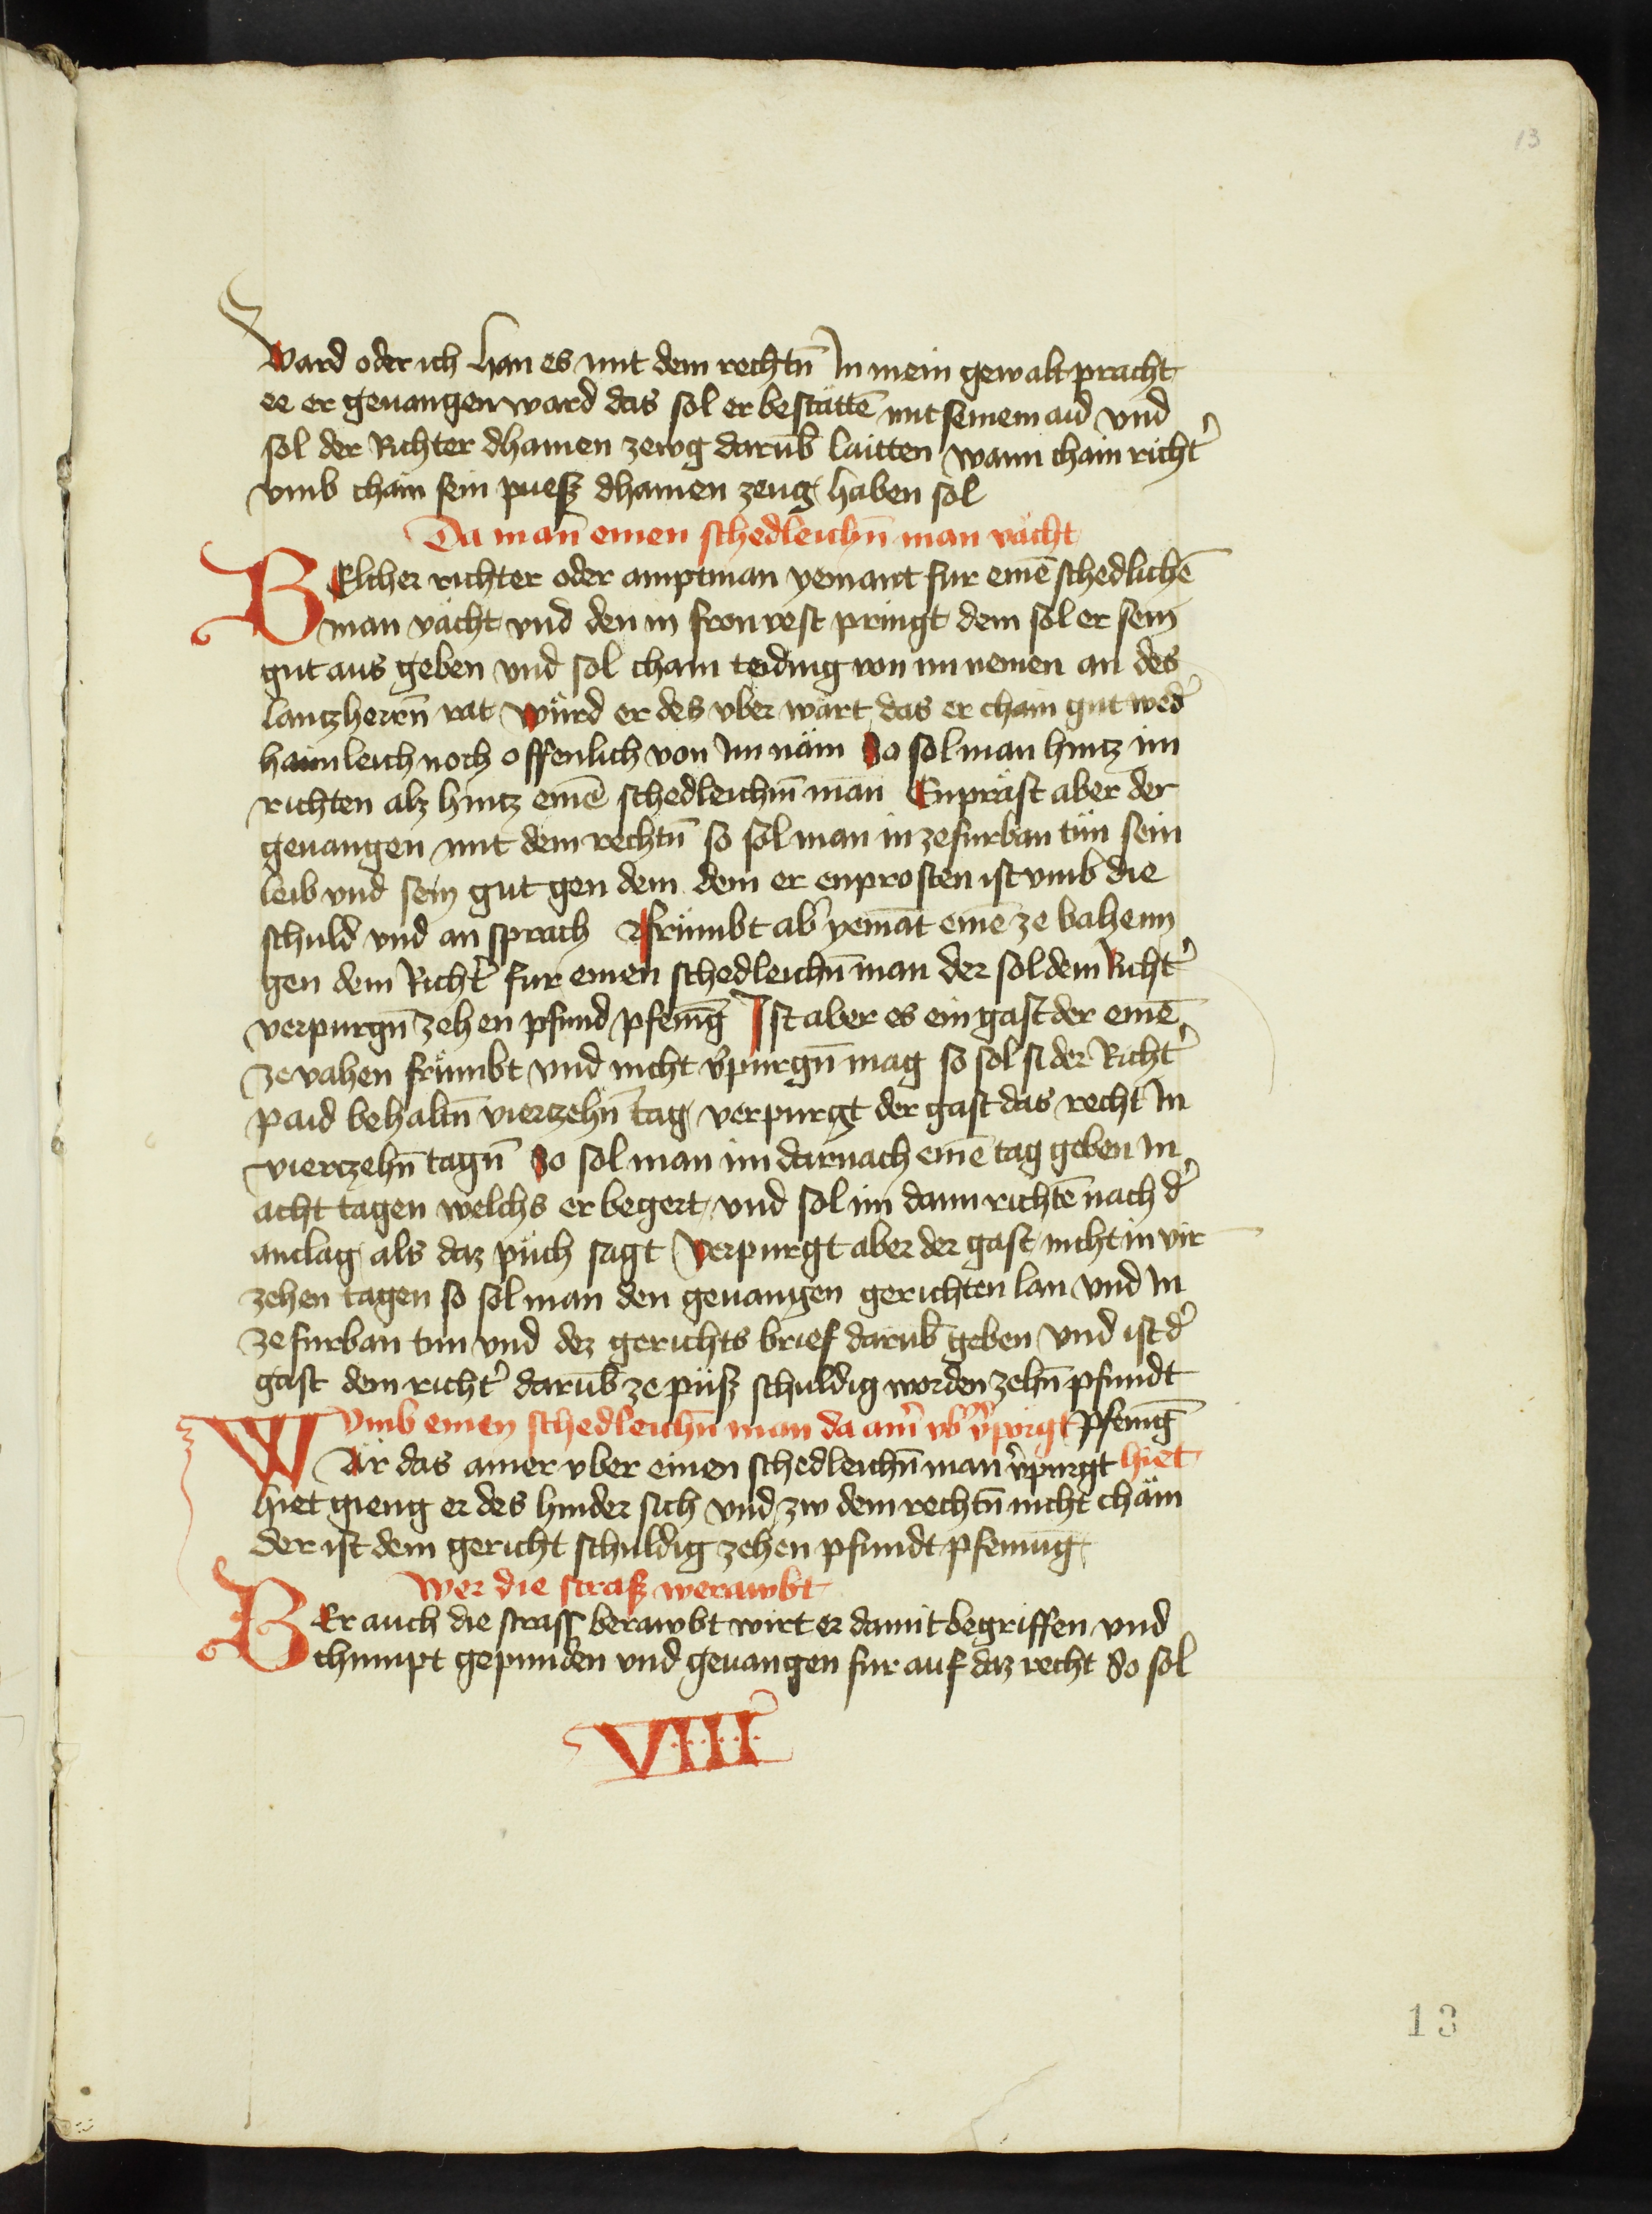 13
ward oder ich han es mit dem rechtn̄ In mein gewalt pracht
ee er geuangen ward das sol er bestättē mit seinem aid vnd
sol der Richter dhainen zewg darūb laitten wann chain richt͛
vmb chain sein puesz dhainen zeug haben sol
Da man̄ einen schedleichn̄ man vächt
WElcher richter oder amptman yemant fur einē schedlichē
man vächt vnd den in fronvest pringt dem sol er sein
gut aus geben vnd sol chain teiding von im nemen an des
lantzherrn̄ rat Würd er des vber wärt das er chain gut wed͛
haimleich noch offenlich von Im näm So sol man hintz im
richten alz hintz einē schedleichm̄ man Enpräst aber der
geuangen mit dem rechtn̄ so sol man in ze furban tün sein
leib vnd sein gut gen dem dem er enprosten ist vmb die
schuld vnd an sprach Frümbt ab͛ yemāt einē ze vahenn
gen dem Richt͛ fur einen schedleichn̄ man der sol dem Richt͛
verpurgn̄ zehen pfund pfenīg Ist aber es ein gast der einē
ze vahen frümbt vnd nicht v͛purgn̄ mag so sol si der Richt͛
paid behaltn̄ viertzehn̄ tag verpurgt der gast das recht In
viertzehn̄ tagn̄ So sol man im darnach einē tag geben In
acht tagen welchs er begert vnd sol im dann richtē nach d͛
anclag als daz püch sagt Verpurgt aber der gast nicht in vir
zehen tagen so sol man den geuangen gerichten lan vnd In
ze furban tun vnd dez gerichts brief darūb geben vnd ist d͛
gast dem richt͛ darūb ze püsz schuldig worden zehn̄ pfundt
pfenīg
Vmb einen schedleichn̄ man da ain͛ vb͛ v͛pürgt
hiet
WÄr das ainer vber einen schedleichn̄ man v͛purgt
hiet gieng er des hinder sich vnd zw dem rechtn̄ nicht chäm
der ist dem gericht schuldig zehen pfundt pfenning
Wer die strasz werawbt
WEr auch die strass berawbt wirt er damit begriffen vnd
chumpt gepunden vnd geuangen fur auf daz recht So sol
VIIII
13